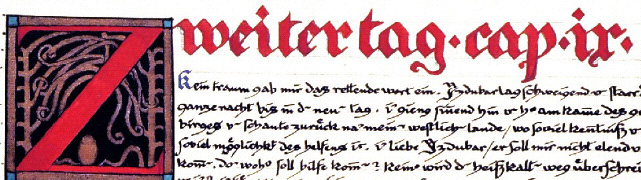 Zweiter tag · cap · ix ·
Kein traum gab mir das rettende wort ein. Izdubar lag schweigend u starr
ganze nacht bis an d neu tag. u gieng sinnend hin u her am kame des ge
birges u schaute zurück na mein westlich lande, wo soviel kentniß u
soviel möglichkt des helfens ist. i liebe Izdubar, er soll mir nicht elend v
kom. do woh soll hilfe kom? Kein wird d heißkalt weg überschrei